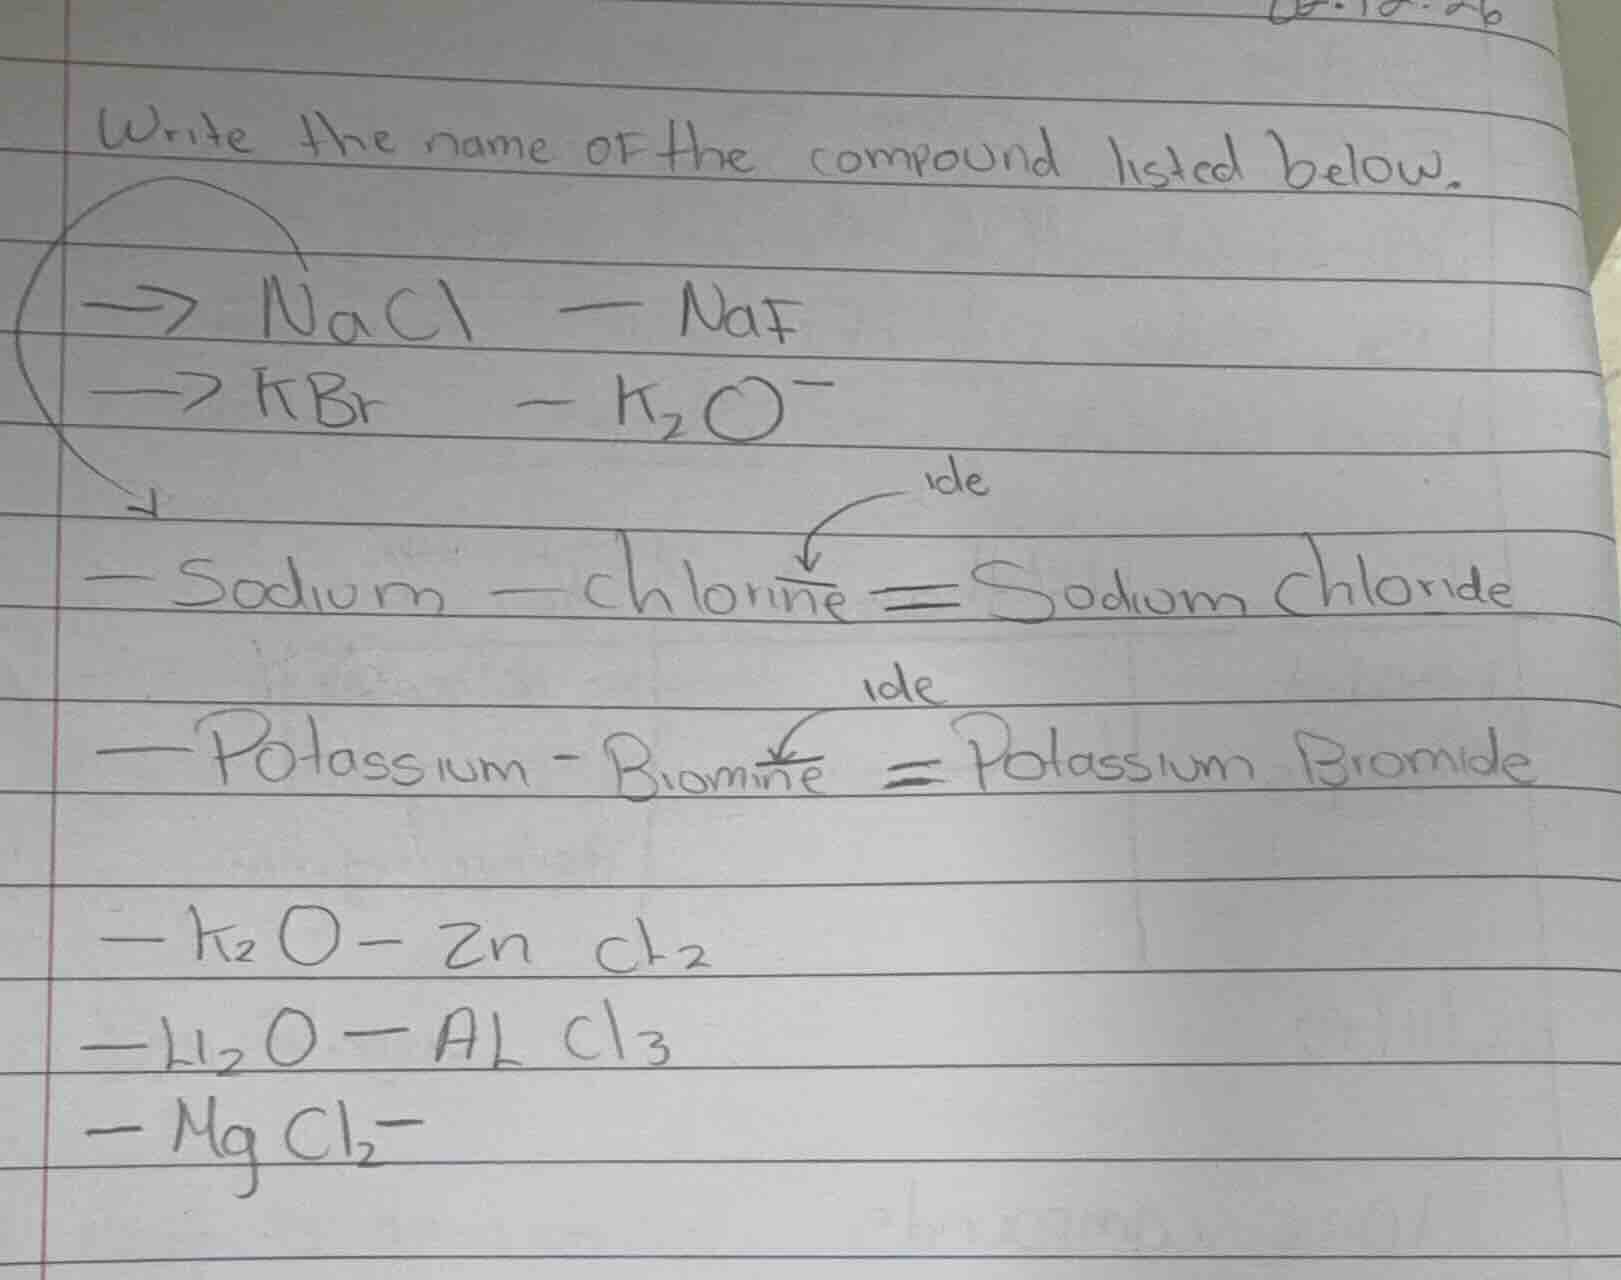 Write the name of the compound listed below.
→ NaCl — NaF
→ KBr — K₂O⁻
ide
— Sodium — chlorine = Sodium chloride
ide
— Potassium - Bromine = Potassium Bromide
— K₂O — Zn Cl₂
— Li₂O — AL Cl₃
— Mg Cl₂ —